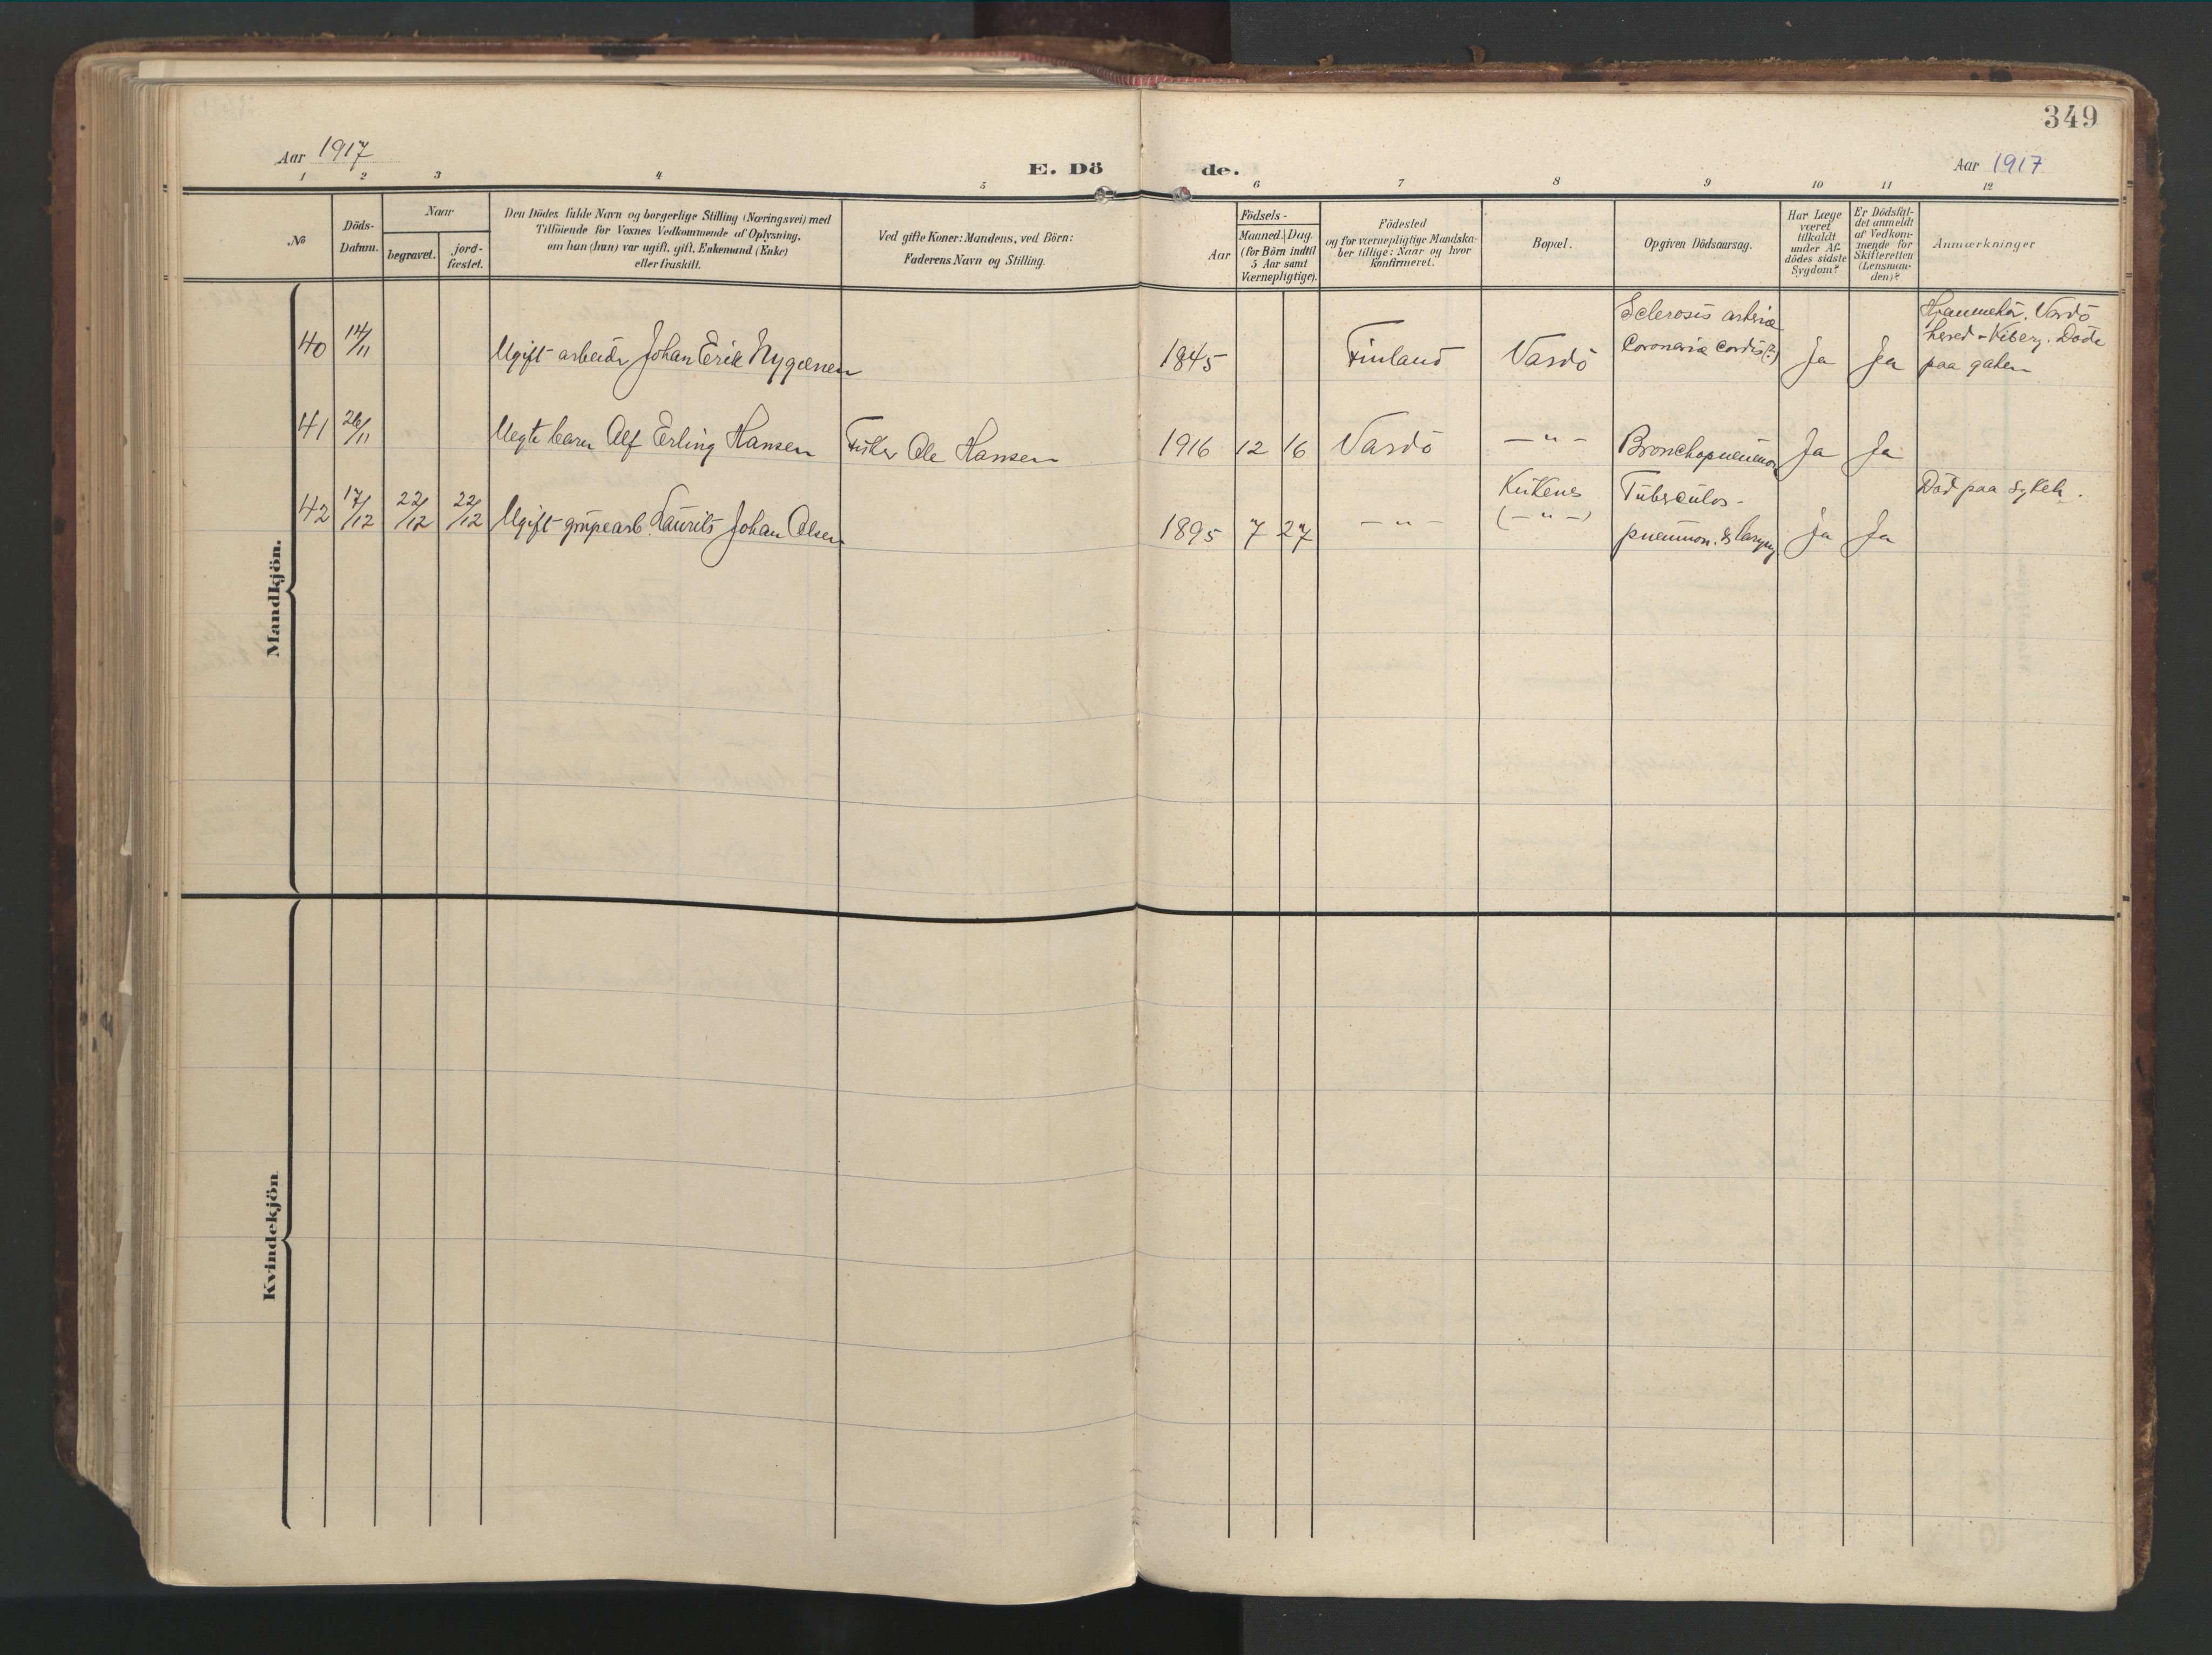 349
Aar 1917
E. Dö
de.
Aar 1917
1 2 3 4 5 6 7 8 9 10 11 12
№
Döds-
Datum.
Naar
begravet.
jord-
fæstet.
Den Dödes fulde Navn og borgerlige Stilling (Næringsvei) med
Tilföiende for Voxnes Vedkommende af Oplysning,
om han (hun) var ugift, gift, Enkemand (Enke)
eller fraskilt.
Ved gifte Koner: Mandens, ved Börn:
Faderens Navn og Stilling.
Födsels-
Aar
Maaned. Dag.
(for Börn indtil
5 Aar samt
Værnepligtige).
Födested
og for værnepligtige Mandska-
ber tillige: Naar og hvor
konfirmeret.
Bopæl.
Opgiven Dödsaarsag.
Har Læge
været
tilkaldt
under Af-
dödes sidste
Sygdom?
Er Dödsfal-
det anmeldt
af Vedkom-
mende for
Skifteretten
(Lensman-
den)?
Anmærkninger
Mandkjön.
40 14/11 Ugift arbeider Johan Erik Nygænen 1845 Finland Vardö
Sclerosis arteriæ
Coronariæ Cordis (?)
Ja Ja
Vardö
hered - Kiberg. Døde
paa gaten
41 26/11 Uegte barn Alf Erling Hansen Fisker Ole Hansen 1916 12 16 Vardö — " — Bronchopneumon Ja Ja
42 17/12 22/12 22/12 Ugift grubearb. Laurits Johan Olsen 1895 7 27 — " —
Kirkenes
(— " —)
Tuberculos-
pneumon. & laryng.
Ja Ja
Död paa sykeh.
Kvindekjön